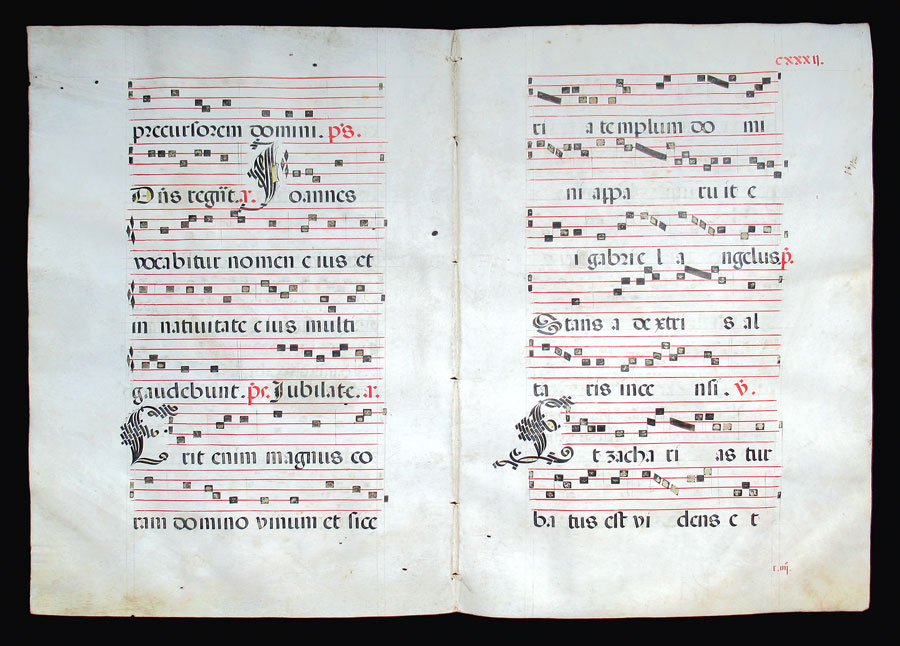 precursorem domini. p̄s.
Dñs regñt. a. Joannes
vocabitur nomen eius et
in nativitate eius multi
gaudebunt. p̄s. Jubilate. a.
Erit enim magnus co
ram domino vinum et sice
cxxxij.
ri a templum do mi
ni appa ruit e
i gabrie l a ngelus p̄.
Stans a dextri s al
ta ris ince nsi. v̄.
Et zacha ri as tur
ba tus est vi dens e t
r. iiij.